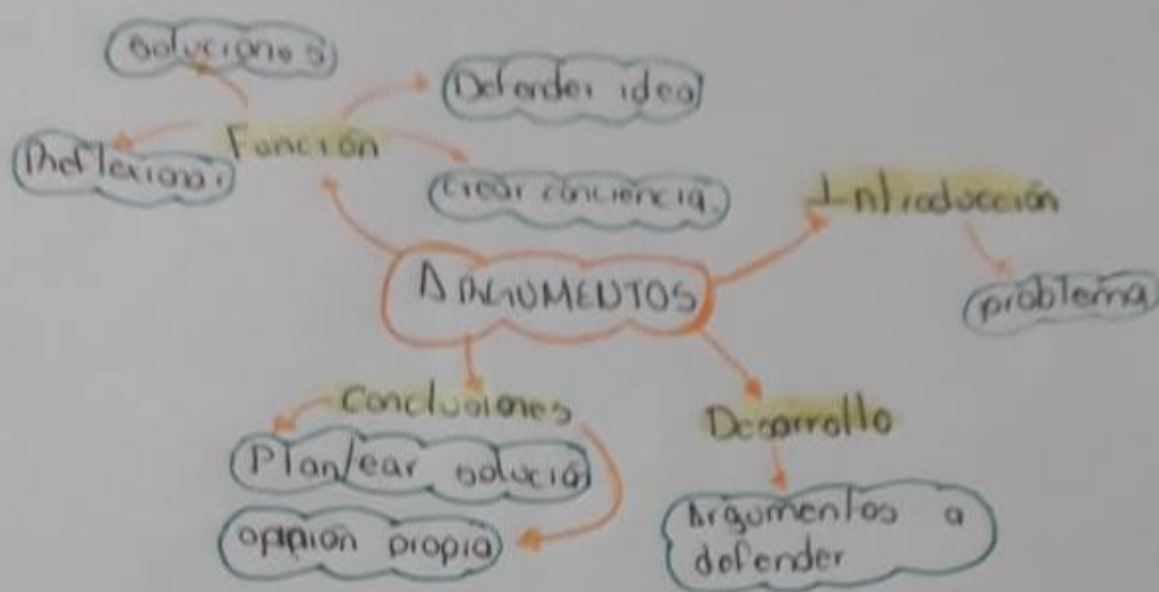 soluciones
Defender idea
Función
Reflexionar
crear conciencia.
Introducción
ARGUMENTOS
problema
Conclusiones
Desarrollo
Plantear solució
opinión propia
Argumentos a
defender